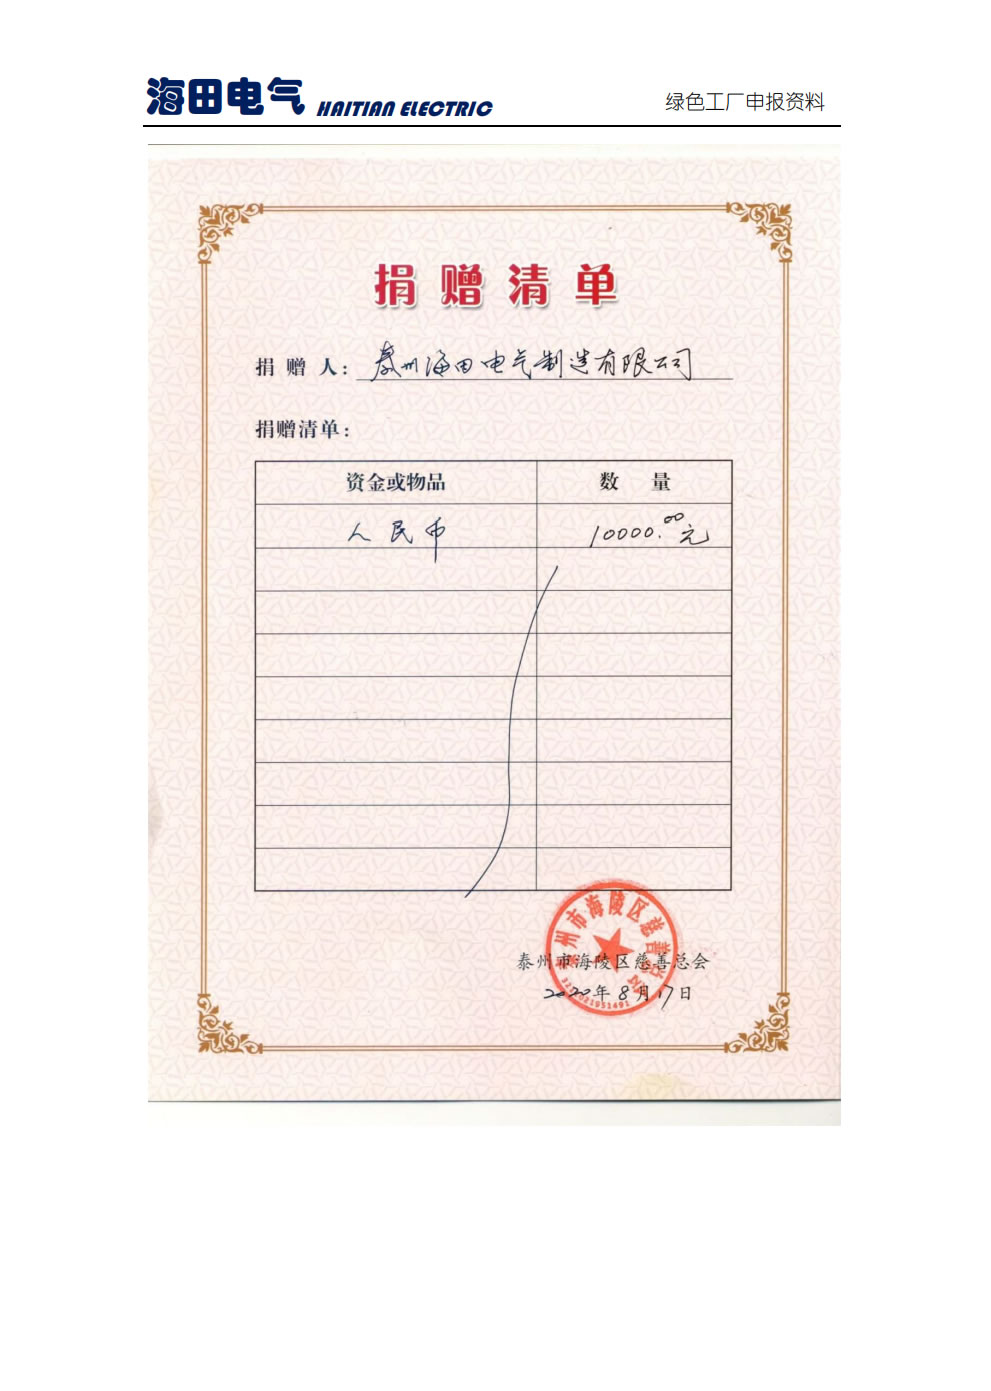 海田电气 HAITIAN ELECTRIC 绿色工厂申报资料
捐赠清单
捐赠人：泰州海田电气制造有限公司
捐赠清单：
资金或物品 数量
人民币 10000.00元
泰州市海陵区慈善总会
泰州市海陵区慈善总会
2020年8月17日